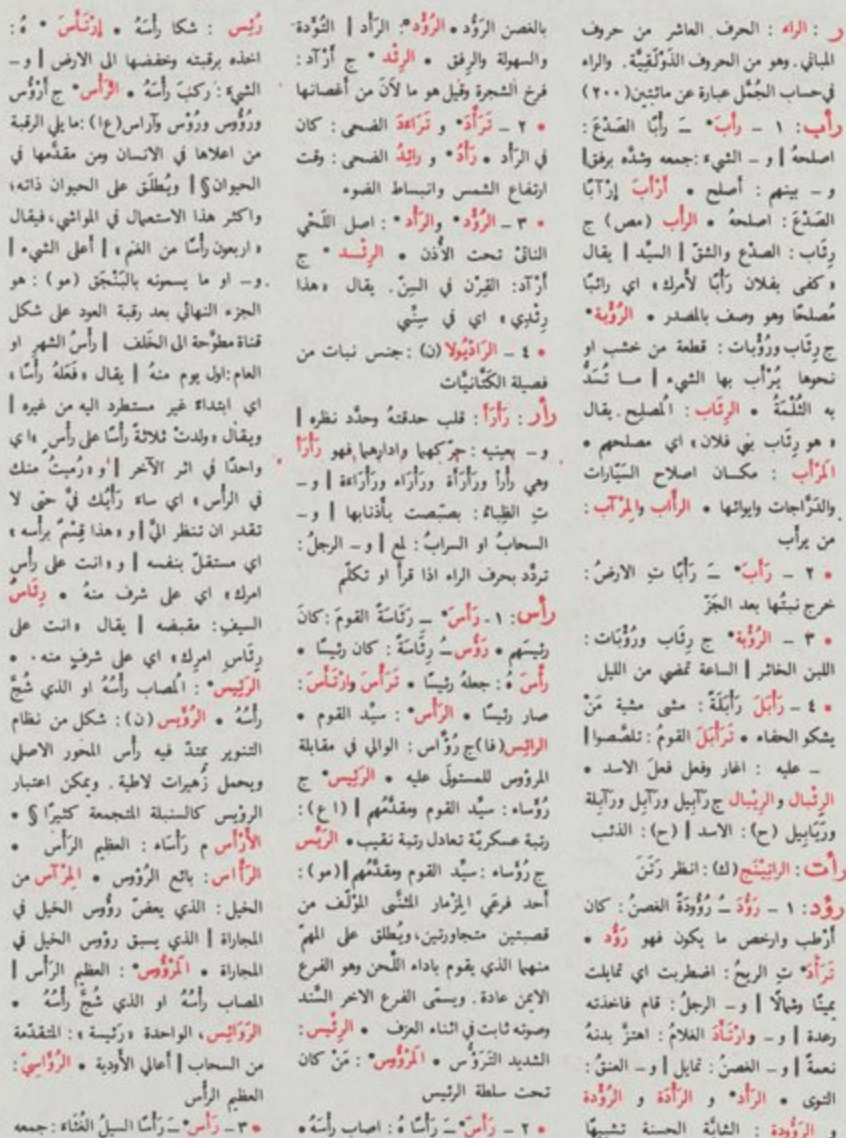 ر : الراء : الحرف العاشر من حروف
المباني. وهو من الحروف الذَوْلَقِيَّة. والراء
في حساب الجُمَّل عبارة عن مائتين (٢٠٠)
رأب: ١ – رأبَ* ـَ رَأْبًا الصَدْعَ:
اصلحهُ | و – الشيءَ :جمعه وشدّه برفق|
و – بينهم : أصلح • أَرْأَبَ إرْآبًا
الصَدْعَ: اصلحهُ • الرأب (مص) ج
رِئاب: الصدْع والشقّ | السيّد | يقال
«كفى بفلان رَأْبًا لأمرك» اي رائبًا
مُصلحًا وهو وصف بالمصدر • الرُؤْبة*
ج رِئاب ورُؤْبات: قطعة من خشب او
نحوها يُرْأب بها الشيء | مـا تُسَدُّ
به الثُلْمَةُ • الرِئاب: المُصلِح. يقال
« هو رِئاب بني فلان» اي مصلحهم •
المَرْأب : مكـان اصلاح السيّارات
والدَرّاجات وايوائها • الرأّاب والمِرْآب:
من يرأب
• ٢ – رَأَبَ* ـَ رَأْبًا تِ الارضُ:
خرج نبتُها بعد الجَزّ
• ٣ – الرُؤْبة* ج رِئاب ورُؤْبَات:
اللبن الخاثر | الساعة تمضي من الليل
• ٤ – رَأْبَلَ رَأْبَلَةً: مشى مشية مَنْ
يشكو الحفاء • تَرَأْبَلَ القومُ: تلصّصوا|
– عليه : اغار وفعل فعلَ الاسد •
الرِئْبال والرِيْبال ج رَآبيل ورَآبِل ورَآبِلة
ورَيَابيل (ح): الاسد | (ح): الذئب
رأت: الراتِيْنَج(ك): انظر رَتَنَ
رؤد: ١ – رَؤُدَ ـُ رُؤُودَةً الغصنُ: كان
أرْطب وارخص ما يكون فهو رَؤُد •
تَرَأَّدَ* تِ الريحُ: اضطربت اي تمايلت
يمينًا وشمالًا | و – الرجلُ: قام فاخذته
رعدة | و – وارْتَأَدَ الغلامُ: اهتزّ بدنهُ
نعمةً | و – الغصنُ: تمايل | و – العنقُ:
التوى • الرأْد* و الرَأْدَة و الرُؤْدة
و الرَؤُودة : الشابّة الحسنة تشبيهًا
بالغصن الرَؤُد • الرُؤْد*: الرَأْد | التُؤدة
والسهولة والرِفق • الرِئْد * ج أرْآد:
فرخ الشجرة وقيل هو ما لانَ من أغصانها
• ٢ – تَرَأَّدَ* و تَرَاءَدَ الضحى: كان
في الرَأْد • رَأْدُ* و رائِدُ الضحى: وقت
ارتفاع الشمس وانبساط الضوء
• ٣ – الرُؤْد* والرَأْد*: اصل اللَحْي
الناتئ تحت الأُذن • الرِئْـد * ج
أرْآد: القِرْن في السِنّ. يقال «هذا
رِئْدِي» اي في سِنّي
• ٤ – الرَادْيُولا(ن): جنس نبات من
فصيلة الكَتّانيَّات
رأر : رَأْرَأَ: قلب حدقتهُ وحدّد نظره |
و – بعينيه: حرّكهما وادارهما فهو رَأْرَأ
وهي رَأْرأ ورَأْرَأة ورَأْراء ورَأْرَاءة | و –
تِ الظِباءُ: بصبصت بأَذنابها | و –
السحابُ او السرابُ: لمع | و – الرجلُ:
تردّد بحرف الراء اذا قرأ او تكلّم
رأس: ١– رَأَسَ* ــَ رَئَاسَةً القومَ: كانَ
رئيسَهم • رَؤُسَ ـُ رِئَاسَةً: كان رئيسًا •
رَأَّسَ هُ: جعلهُ رئيسًا • تَرَأَّسَ وارْتَأَسَ:
صار رئيسًا • الرَأْس*: سيّد القوم •
الرائِس(فا) ج رُؤَّاس: الوالي في مقابلة
المرؤوس للمستولَى عليه • الرَئيس* ج
رُؤَساء: سيّد القوم ومقدَّمُهم | (ا ع):
رتبة عسكريّة تعادل رتبة نقيب• الرَيّس
ج رُؤَساء: سيّد القوم ومقدَّمُهم|(مو):
أحد فرعَي المِزْمار المثنّى المؤلّف من
قصبتين متجاورتين،ويُطلق على المهمّ
منهما الذي يقوم باداء اللَحن وهو الفرع
الايمن عادة. ويسمّى الفرع الاخر السَند
وصوته ثابت في اثناء العزف • الرِئّيس:
الشديد التَرَؤُّس • المَرْؤوس*: مَنْ كان
تحت سلطة الرئيس
• ٢ – رَأَسَ* ـَ رَأْسًا هُ: اصاب رأسَهُ •
رُئِس : شكا رأسَهُ • إرْتَـأَس • هُ:
اخذه برقبته وخفضها الى الارض | و –
الشيءَ: ركبَ رأسَهُ • الرَأْس* ج أرْؤُس
ورُؤُوس ورُؤْس وآراس(ع ا): ما يلي الرقبة
من اعلاها في الانسان ومن مقدَّمها في
الحيوان§| ويُطلَق على الحيوان ذاته؛
واكثر هذا الاستعمال في المواشي،فيقال
« اربعون رأسًا من الغنم » | أعلى الشيء |
و– او ما يسمونه بالبَنْجَق (مو): هو
الجزء النهائي بعد رقبة العود على شكل
قناة مطوَّحة الى الخَلف | رأسُ الشهر او
العام:اول يوم منهُ | يقال «فَعَلهُ رأسًا»
اي ابتداءً غير مستطرد اليه من غيره |
ويقال «ولدتْ ثلاثةً رأسًا على رأسٍ» اي
واحدًا في اثر الآخر | و«رُميتُ منك
في الرأس» اي ساء رَأْيُك فيَّ حتى لا
تقدر ان تنظر اليَّ| و «هذا قِسْمٌ برأسه»
اي مستقلّ بنفسه | و «انت على رأس
امرك» اي على شرف منهُ • رِئَاسُ
السيفِ: مقبضه | يقال «انت على
رِئَاسِ امرِك» اي على شرفٍ منه •
الرَئيس*: المُصاب رأسُهُ او الذي شُجَّ
رأسُهُ • الرُؤَيْس (ن): شكل من نظام
التنوير يمتدّ فيه رأس المحور الاصلي
ويحمل زُهيرات لاطية. ويمكن اعتبار
الرؤيس كالسنبلة المتجمعة كثيرًا § •
الأَرْأَس م رَأْسَاء: العظيم الرَأس •
الرَأّاس: بائع الرُؤوس • المِرْآس من
الخيل: الذي يعضّ رؤُوس الخيل في
المجاراة | الذي يسبق رؤوس الخيل في
المجاراة • المَرْؤوس*: العظيم الرَأس |
المصاب رأسُهُ او الذي شُجَّ رأسُهُ •
الرَوَائِس، الواحدة «رَئيسة»: المتقدّمة
من السحاب | أعالي الأودية • الرُؤَاسِيّ:
العظيم الرأس
• ٣ – رَأَسَ* ـَ رَأْسًا السيلُ الغُثَاءَ: جمعه